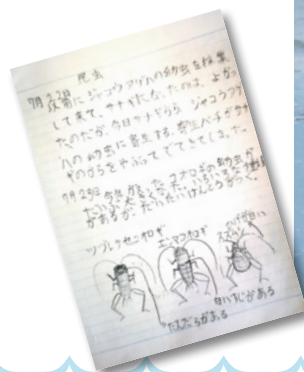 昆虫
7月22日
以前にジャコウアゲハの幼虫を採集
して来て、サナギになったのは、よかっ
たのだが、今日サナギからジャコウアゲ
ハの幼虫に寄生する、寄生バチがサナ
ギのからをやぶってでてきてしまった。
7月23日
があるが、だいたいけんとうがつく。
ツヅレサセコオロギ
エンマコオロギ
スズムシ
白いすじがある
だんだらがある